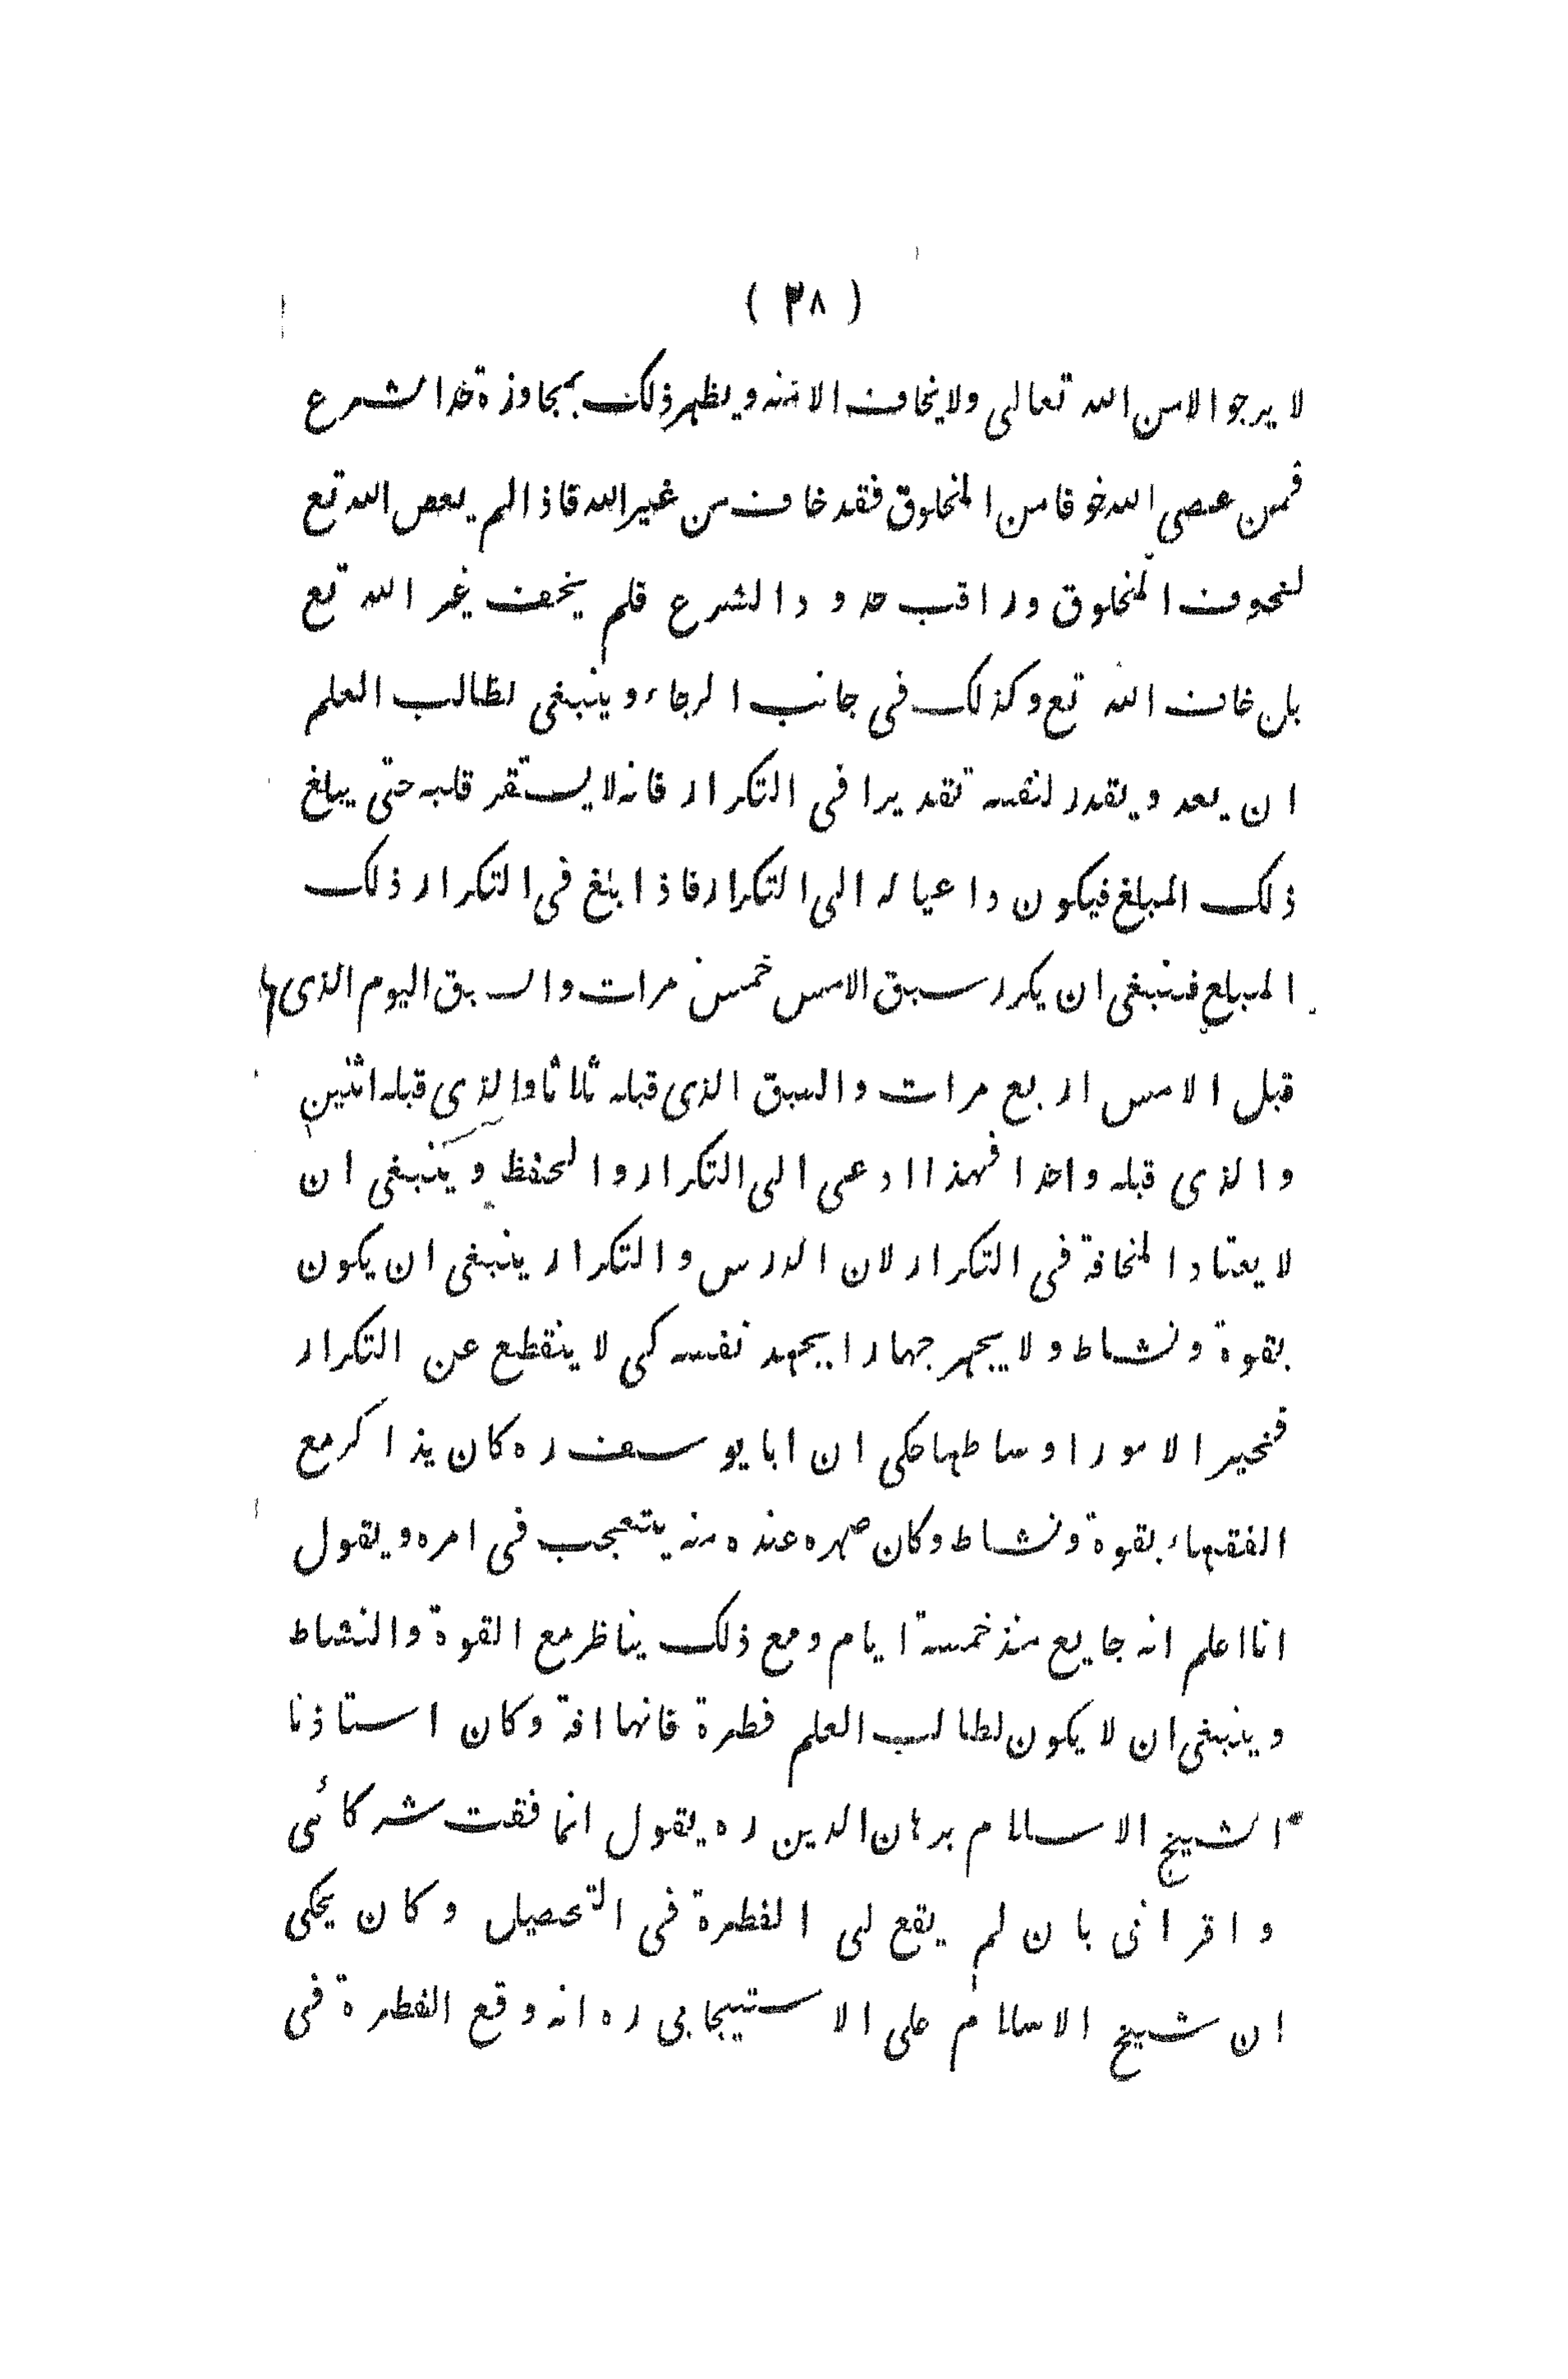 ( ٣٨ )
لا يرجو الا من الله تعالى ولا يخاف الا منه و يظهر ذلك بمجاوزة حد الشرع
فمن عصى الله خوفا من المخلوق فقد خاف من غير الله فاذا لم يعص الله تع
لخوف المخلوق وراقب حدود الشرع فلم يخف غير الله تع
بل خاف الله تع وكذلك فى جانب الرجاء و ينبغى لطالب العلم
ان يعد و يقدر لنفسه تقديرا فى التكرار فانه لا يستقر قلبه حتى يبلغ
ذلك المبلغ فيكون داعيا له الى التكرار فاذا بلغ فى التكرار ذلك
المبلغ فينبغى ان يكرر سبق الامس خمس مرات والسبق اليوم الذى
قبل الامس اربع مرات والسبق الذى قبله ثلاثا والذى قبله اثنين
والذى قبله واحدا فهذا ادعى الى التكرار والحفظ و ينبغى ان
لا يعتاد المخافة فى التكرار لان الدرس والتكرار ينبغى ان يكون
بقوة ونشاط ولا يجهر جهارا يجهد نفسه كى لا ينقطع عن التكرار
فخير الامور اوساطها حكى ان ابا يوسف ره كان يذاكر مع
الفقهاء بقوة ونشاط وكان صهره عنده منه يتعجب فى امره و يقول
انا اعلم انه جايع منذ خمسة ايام ومع ذلك يناظر مع القوة والنشاط
و ينبغى ان لا يكون لطالب العلم فطرة فانها افة وكان استاذنا
الشيخ الاسلام برهان الدين ره يقول انما فقت شركائى
واقرانى بان لم يقع لى الفطرة فى التحصيل وكان يحكى
ان شيخ الاسلام على الاستيجابى ره انه وقع الفطرة فى